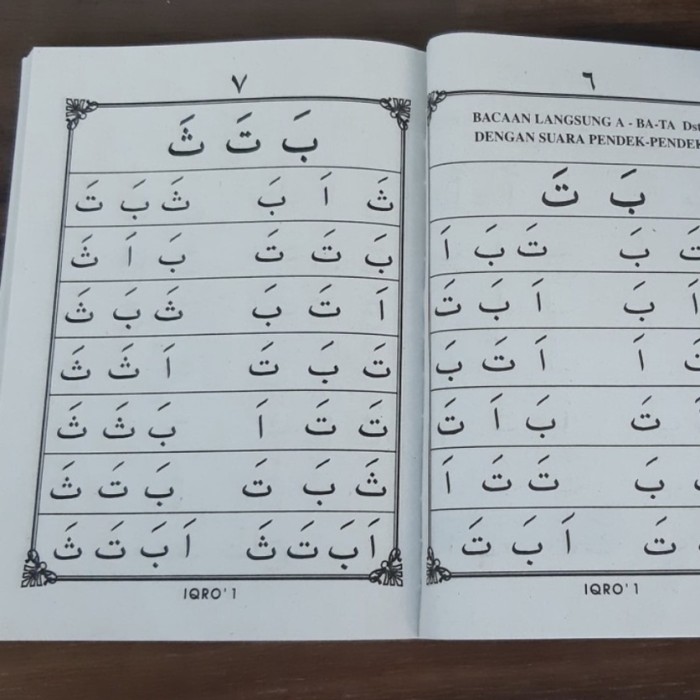 ٦
BACAAN LANGSUNG A - BA-TA Dst
DENGAN SUARA PENDEK-PENDEK
بَ تَ
بَ تَ بَ اَ
اَ بَ اَ بَ تَ
اَ اَ تَ بَ
تَ بَ اَ تَ
بَ تَ تَ اَ
تَ اَ بَ تَ
IQRO' 1
٧
بَ تَ ثَ
ثَ اَ بَ ثَ بَ تَ
بَ تَ تَ بَ اَ ثَ
اَ تَ بَ ثَ بَ ثَ
تَ بَ تَ اَ ثَ ثَ
تَ تَ اَ بَ ثَ ثَ
ثَ بَ تَ بَ تَ ثَ
اَ بَ تَ ثَ اَ بَ تَ ثَ
IQRO' 1